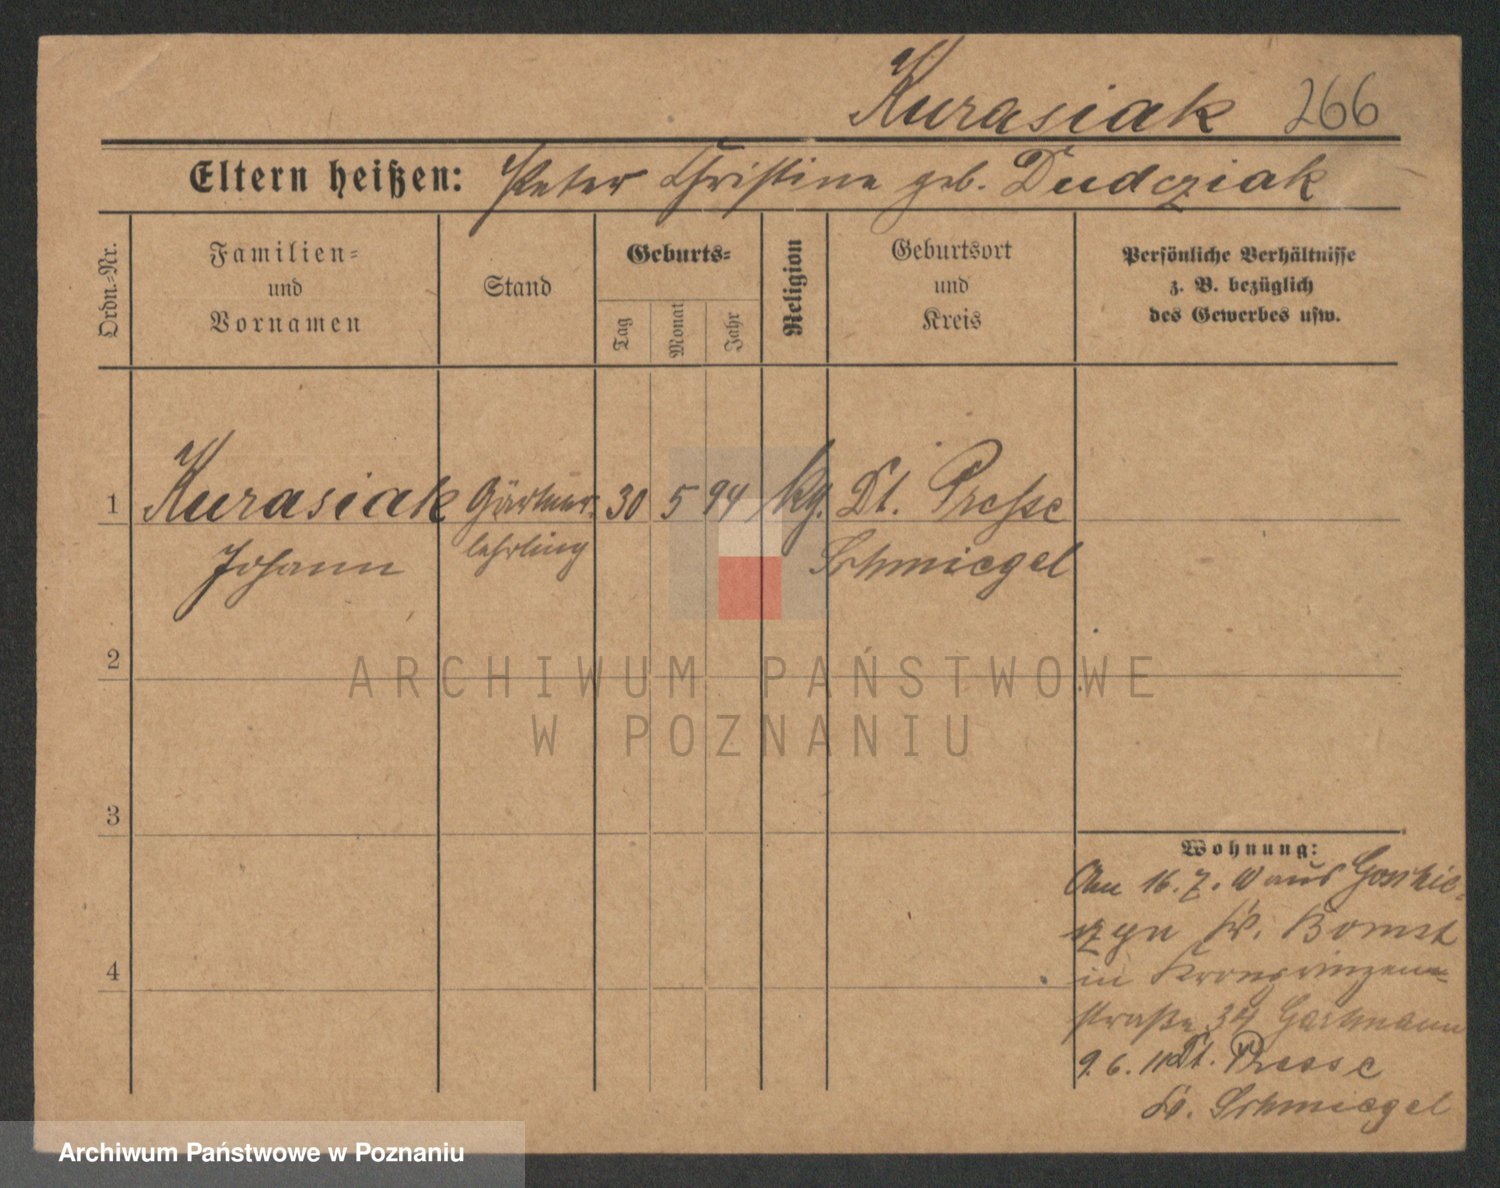 Kurasiak 266
Eltern heißen: Peter Christine geb. Dudcziak
Ordn.-Nr.
Familien-
und
Vornamen
Stand
Geburts-
Tag
Monat
Jahr
Religion
Geburtsort
und
Kreis
Persönliche Verhältnisse
z. B. bezüglich
des Gewerbes usw.
1 Kurasiak Gärtner- 30 5 94 kg. Dt. Presse
Johann lehrling Schmiegel
2
3
4
Wohnung:
Am 16. 7. 10 aus
Kr. Bomst
in Kronprinzen-
straße 34
9. 6. 11 Dt. Presse
Kr. Schmiegel
ARCHIWUM PAŃSTWOWE
W POZNANIU
Archiwum Państwowe w Poznaniu